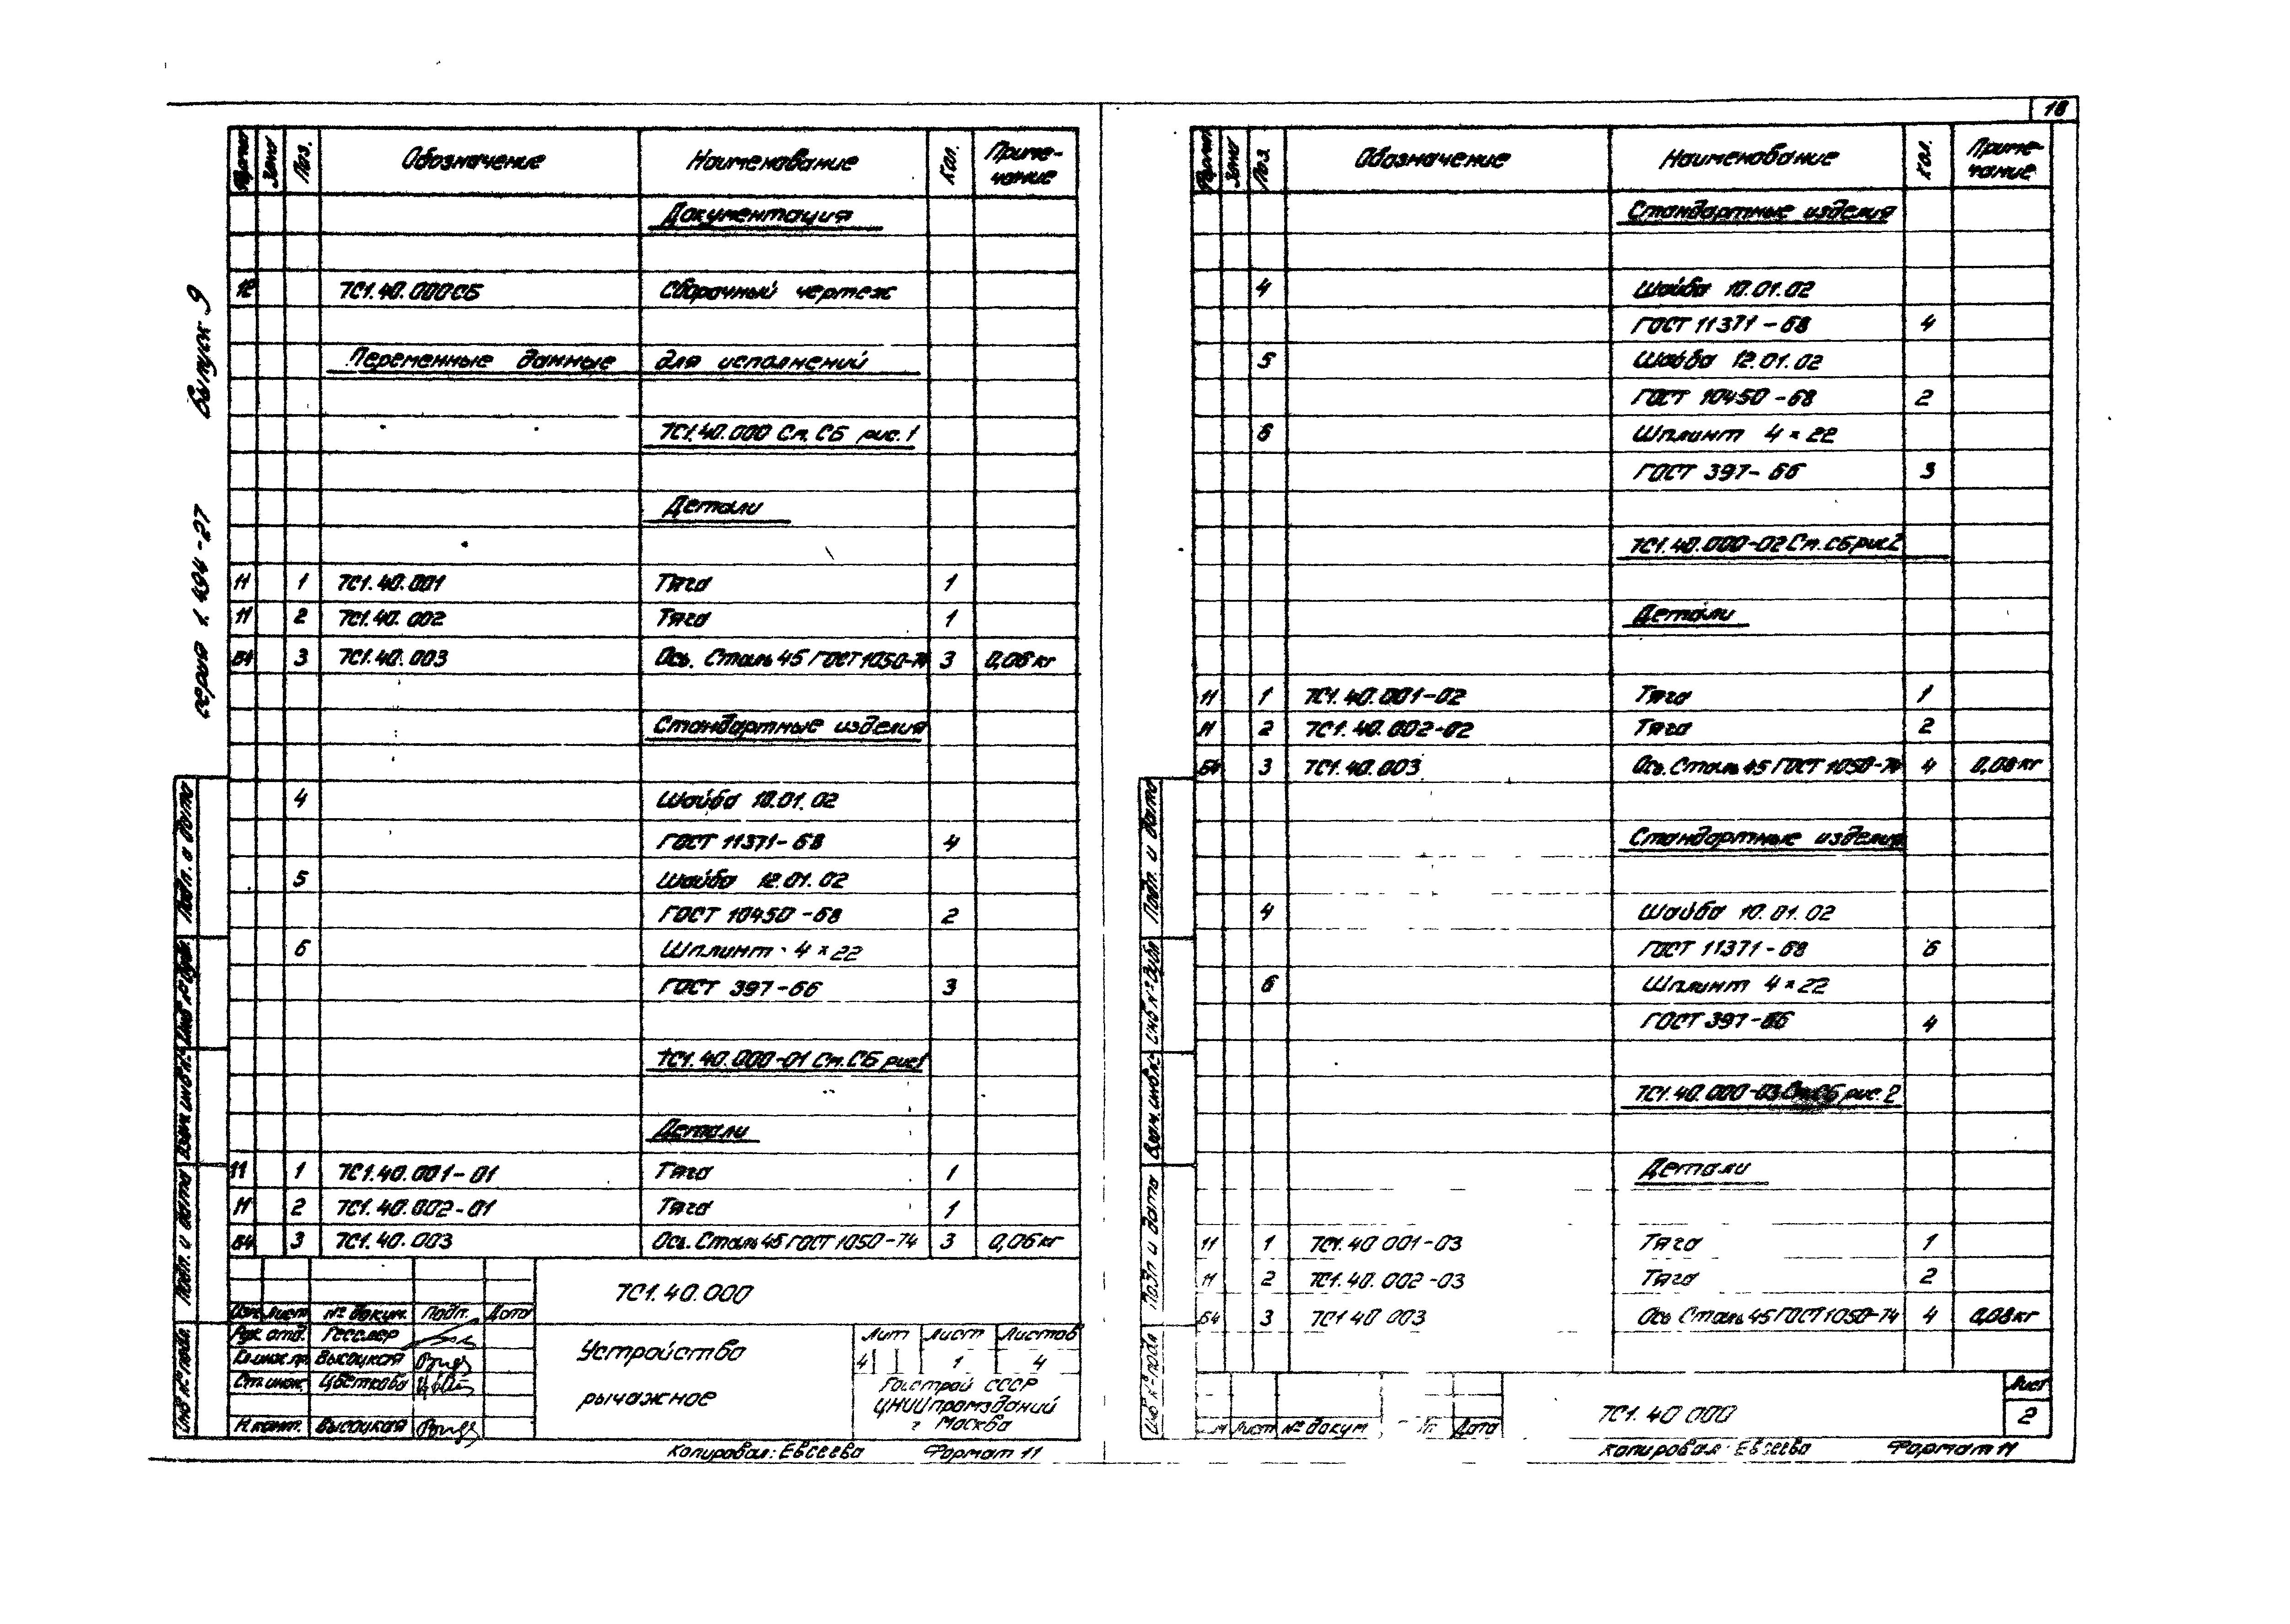 18
серия 1.494-27 Выпуск 9
Формат Зона Поз. Обозначение Наименование Кол. Приме-
чание
Документация
12 7С1.40.000СБ Сборочный чертеж
Переменные данные для исполнений
7С1.40.000 См. СБ рис. 1
Детали
11 1 7С1.40.001 Тяга 1
11 2 7С1.40.002 Тяга 1
БЧ 3 7С1.40.003 Ось. Сталь 45 ГОСТ 1050-74 3 0,06 кг
Стандартные изделия
4 Шайба 10.01.02
ГОСТ 11371-68 4
5 Шайба 12.01.02
ГОСТ 10450-68 2
6 Шплинт 4×22
ГОСТ 397-66 3
7С1.40.000-01 См. СБ рис1
Детали
11 1 7С1.40.001-01 Тяга 1
11 2 7С1.40.002-01 Тяга 1
БЧ 3 7С1.40.003 Ось. Сталь 45 ГОСТ 1050-74 3 0,06 кг
7С1.40.000
Изм. Лист № докум. Подп. Дата
Рук. отд. Гесслер
Гл.инж.пр. Высоцкая
Ст.инж. Цветкова
Н.конт. Высоцкая
Устройство
рычажное
Лит Лист Листов
Ч 1 4
Госстрой СССР
ЦНИИпромзданий
г Москва
Инв № подл. Подп. и дата Взам.инв.№ Инв № дубл. Подп. и дата
Копировал: Евсеева Формат 11
Формат Зона Поз. Обозначение Наименование Кол. Приме-
чание
Стандартные изделия
4 Шайба 10.01.02
ГОСТ 11371-68 4
5 Шайба 12.01.02
ГОСТ 10450-68 2
6 Шплинт 4×22
ГОСТ 397-66 3
7С1.40.000-02 См. СБ рис2
Детали
11 1 7С1.40.001-02 Тяга 1
11 2 7С1.40.002-02 Тяга 2
БЧ 3 7С1.40.003 Ось. Сталь 45 ГОСТ 1050-74 4 0,08 кг
Стандартные изделия
4 Шайба 10.01.02
ГОСТ 11371-68 6
6 Шплинт 4×22
ГОСТ 397-66 4
7С1.40.000-03 См. СБ рис. 2
Детали
11 1 7С1.40 001-03 Тяга 1
11 2 7С1.40.002-03 Тяга 2
БЧ 3 7С1 40 003 Ось Сталь 45 ГОСТ 1050-74 4 0,08 кг
Лист № докум Дата
7С1.40 000
Лист
2
Инв № подл Подп и дата Взам.инв.№ Инв № дубл Подп. и дата
Копировал: Евсеева Формат 11